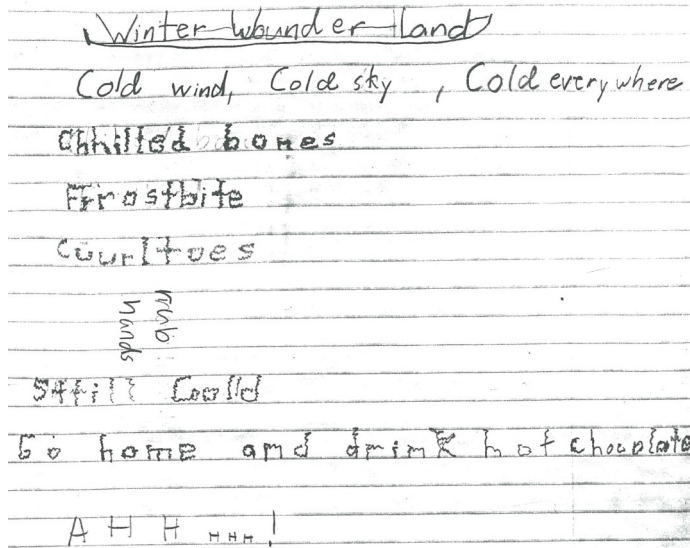 Winter Wounder land
Cold wind, Cold sky , Cold everywhere
Chhilled bones
Frrostbite
Couurl toes
rrub
hands
Sttill Coolld
Go home and drink hot chooclate
AHH HHH !